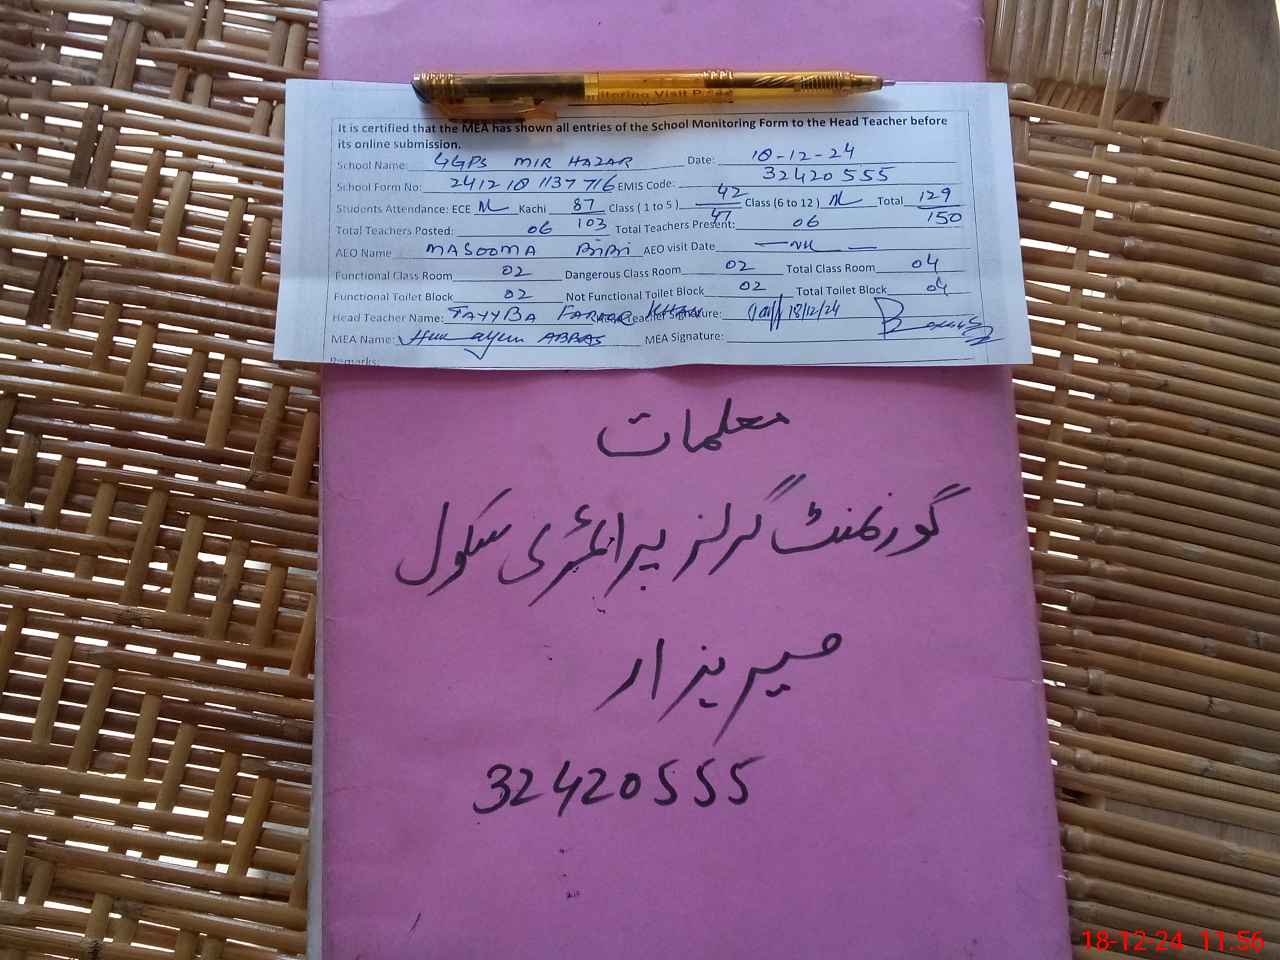 It is certified that the MEA has shown all entries of the School Monitoring Form to the Head Teacher before
its online submission.
School Name: GGPS MIR HAZAR Date: 18-12-24
School Form No: 2412181137716 EMIS Code: 32420555
Students Attendance: ECE Kachi 87/103 Class ( 1 to 5 ) 42/47 Class (6 to 12 ) Total 129/150
Total Teachers Posted: 06 Total Teachers Present: 06
AEO Name MASOOMA BiBi AEO visit Date
Functional Class Room 02 Dangerous Class Room 02 Total Class Room 04
Functional Toilet Block 02 Not Functional Toilet Block 02 Total Toilet Block 04
Head Teacher Name: TAYYBA FAROOQ KHAN Teacher Signature: 18/12/24
MEA Name: ABBAS MEA Signature:
Remarks:
معلمات
گورنمنٹ گرلز پرائمری سکول
میر ہزار
32420555
18-12-24 11:56